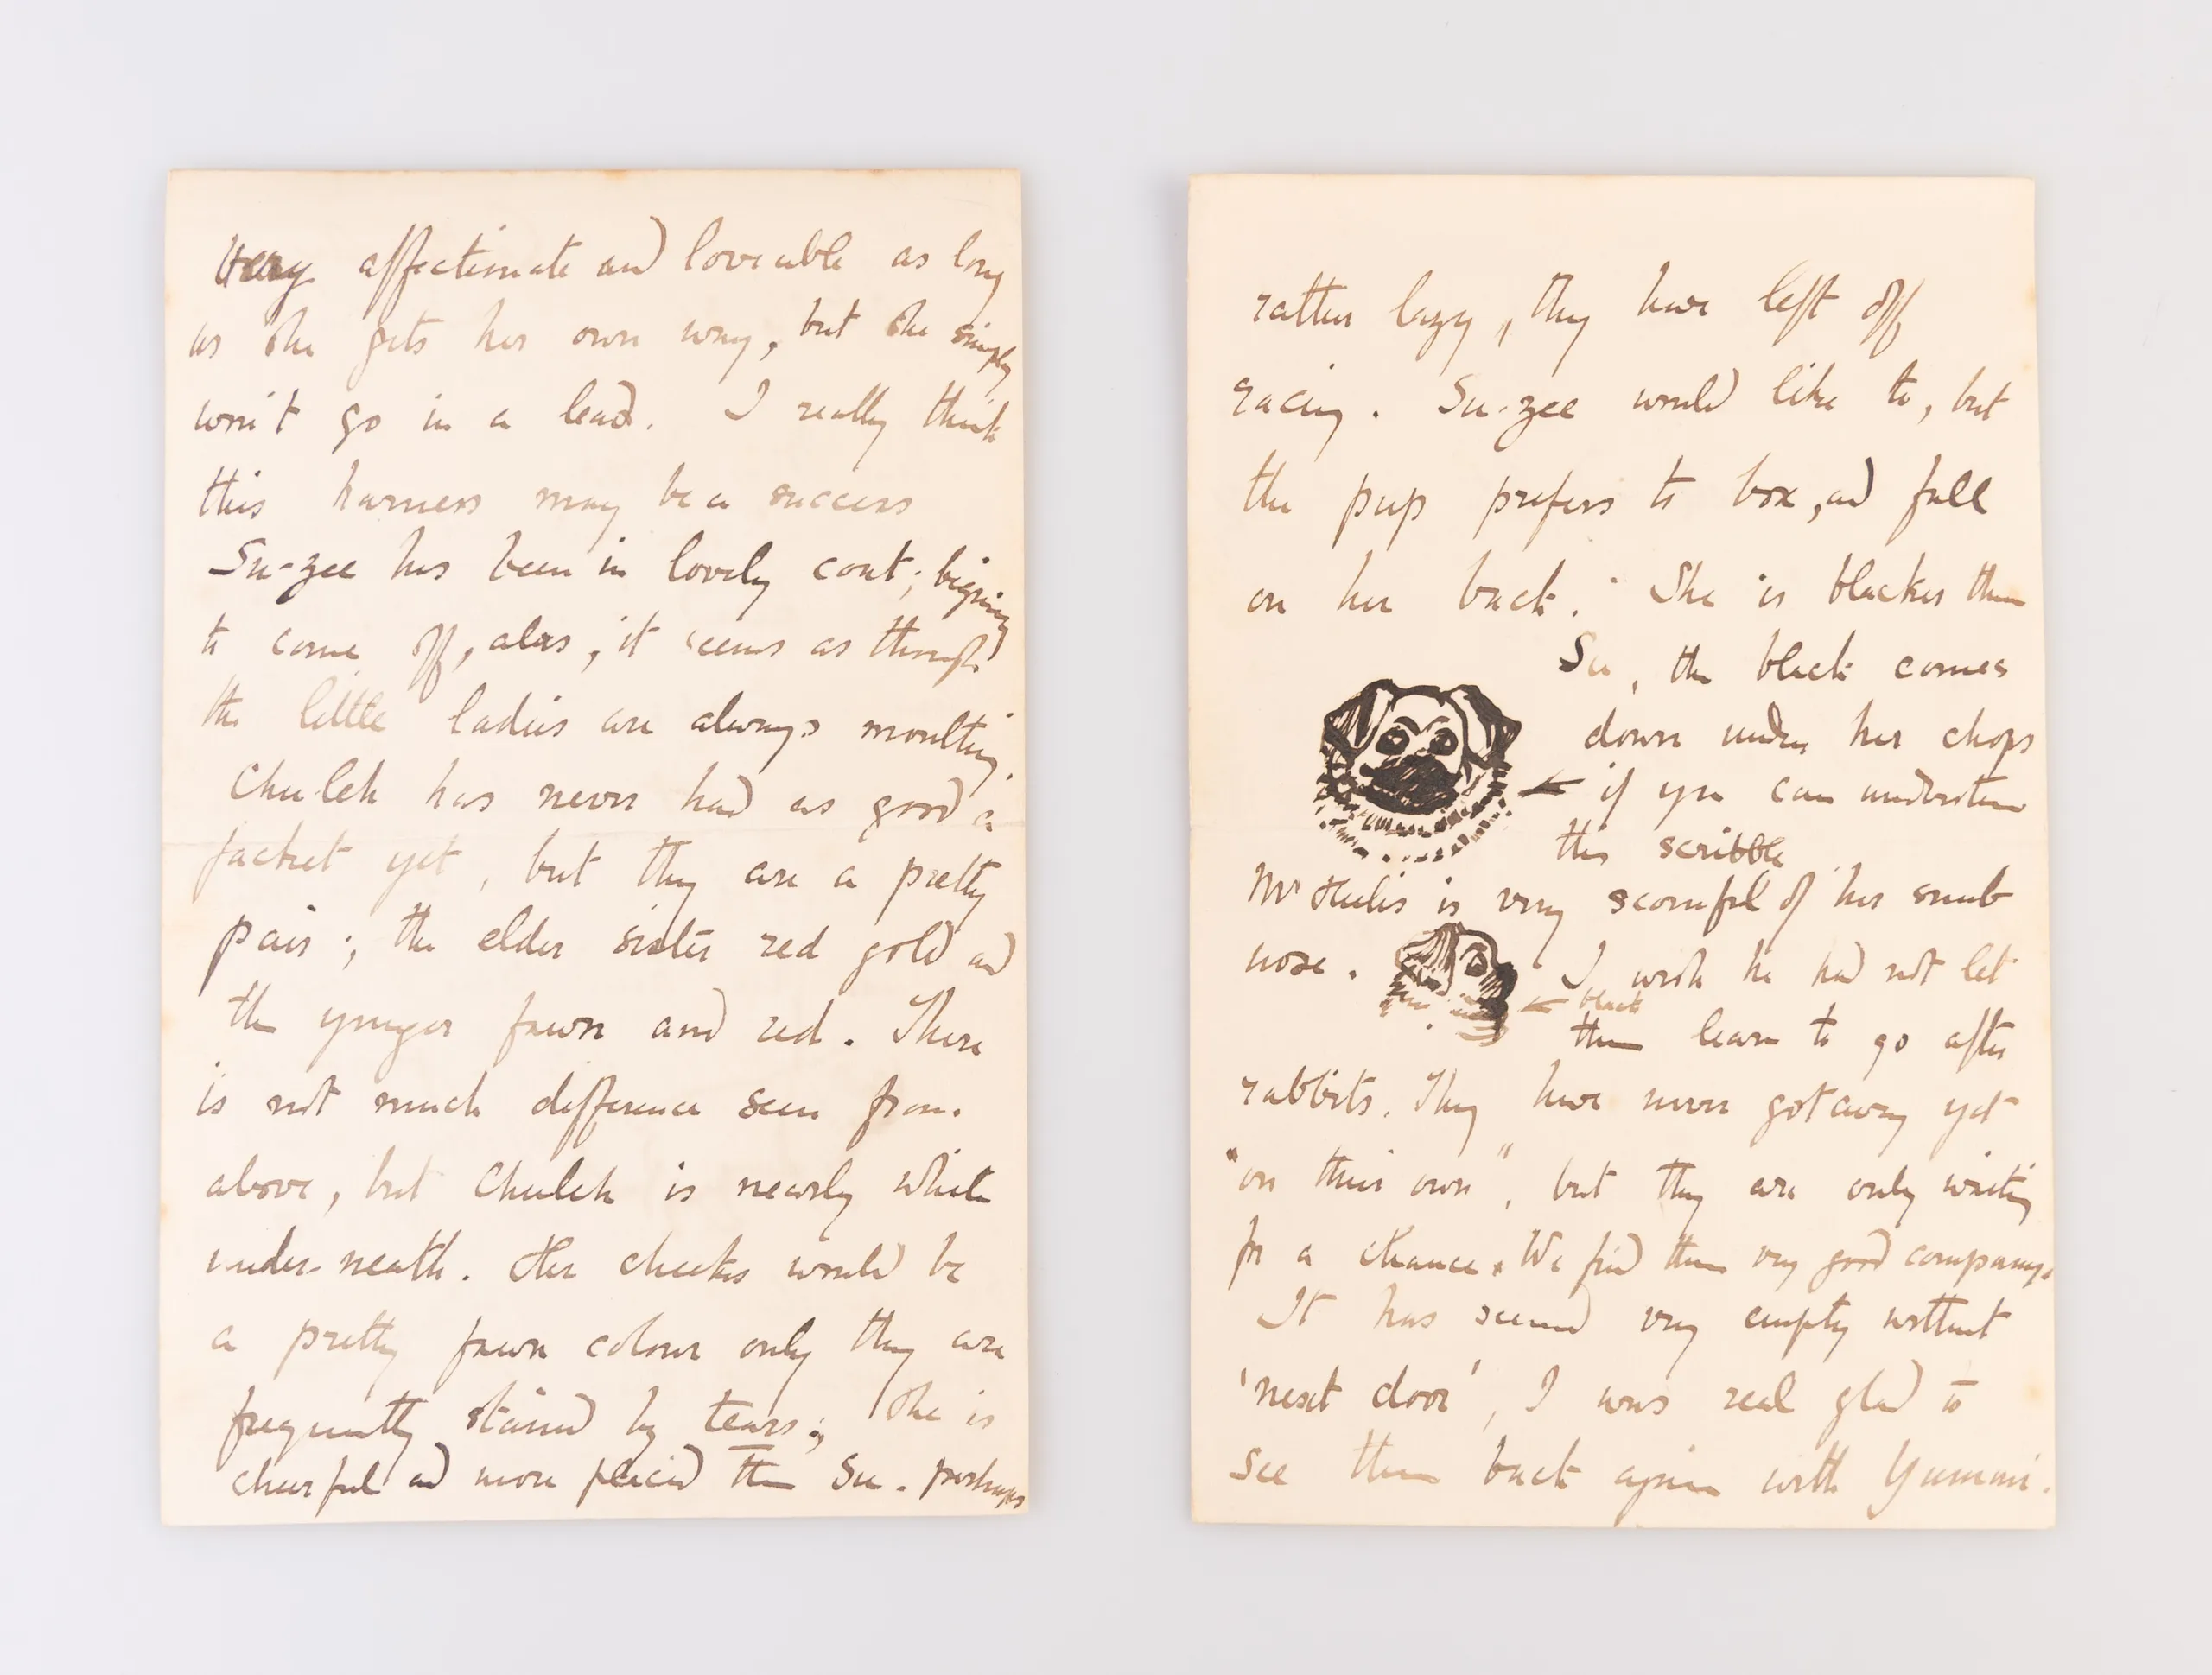 very affectionate and loveable as long
as she gets her own way, but she simply
won't go in a lead. I really think
this harness may be a success
Su-zee has been in lovely coat; begining
to come off, alas, it seems as though
the little ladies are always moulting.
Chuleh has never had as good a
jacket yet, but they are a pretty
pair; the elder sister red gold and
the younger fawn and red. There
is not much difference seen from
above, but Chuleh is nearly white
under-neath. Her cheeks would be
a pretty fawn colour only they are
frequently stained by tears; she is
cheerful and more placid than Su. perhaps
rather lazy, they have left off
racing. Su-zee would like to, but
the pup prefers to box, and fall
on her back. She is blacker than
Su, the black comes
down under her chops
← if you can understand
this scribble
Mr Heelis is very scornful of her snub
nose. I wish he had not let
← black
them learn to go after
rabbits. They have never got away yet
"on their own", but they are only waiting
for a chance. We find them very good company.
It has seemed very empty without
'next door', I was real glad to
see them back again with Yummi.